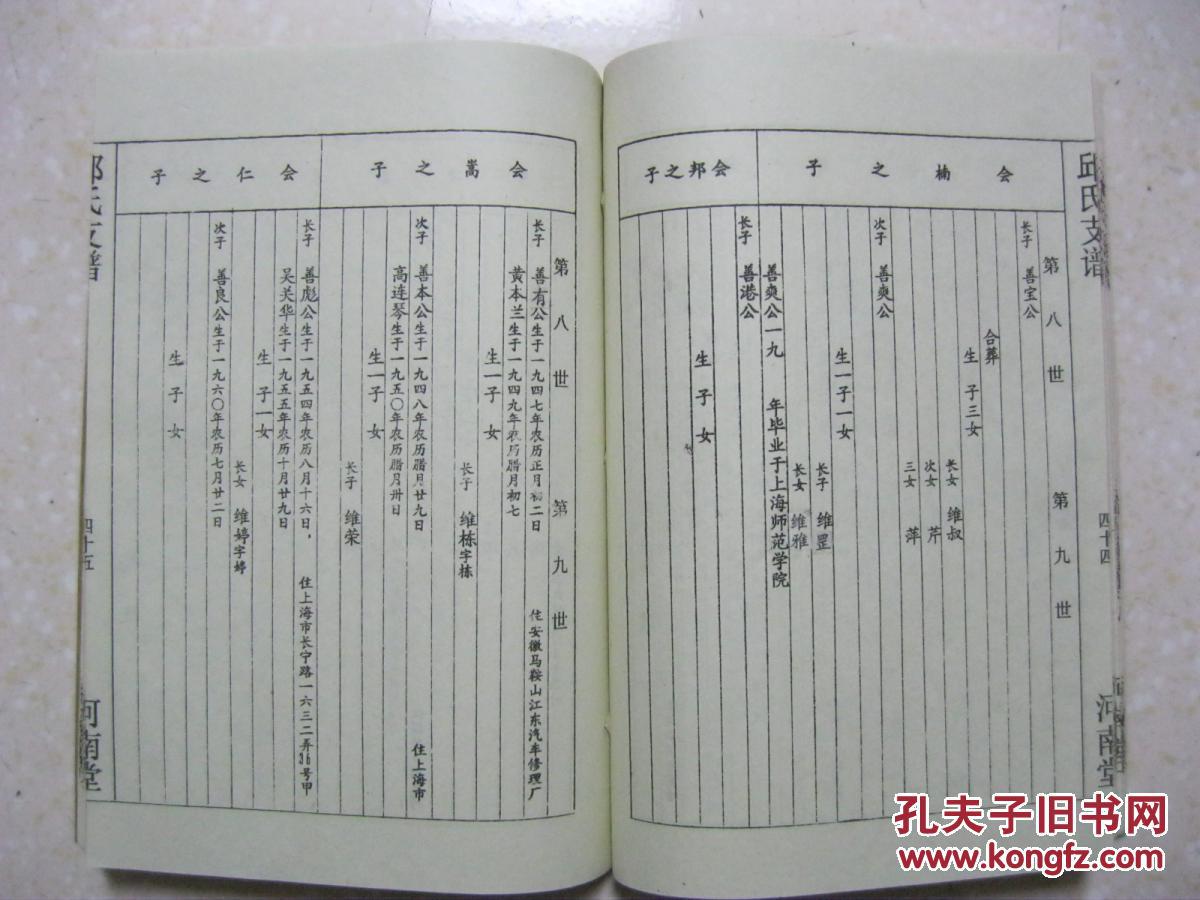 邱氏支谱
四十四
河南堂
会楠之子
会邦之子
第八世 第九世
长子 善宝公
合葬
生 子三女
长女 维叔
次女 芹
三女 萍
次子 善爽公
生一子一女
长子 维罡
长女 维雅
善爽公一九 年毕业于上海师范学院
长子 善港公
生 子 女
会嵩之子
会仁之子
第八世 第九世
长子 善有公生于一九四七年农历正月初二日 住安徽马鞍山江东汽车修理厂
黄本兰生于一九四九年农历腊月初七
生一子 女
长子 维栋字栋
次子 善本公生于一九四八年农历腊月廿九日 住上海市
高连琴生于一九五〇年农历腊月卅日
生一子 女
长子 维荣
长子 善彪公生于一九五四年农历八月十六日， 住上海市长宁路一六三二弄36号甲
吴关华生于一九五五年农历十月廿九日
生 子一女
长女 维婷字婷
次子 善良公生于一九六〇年农历七月廿二日
生 子 女
邱氏支谱
四十五
河南堂
孔夫子旧书网
www.kongfz.com